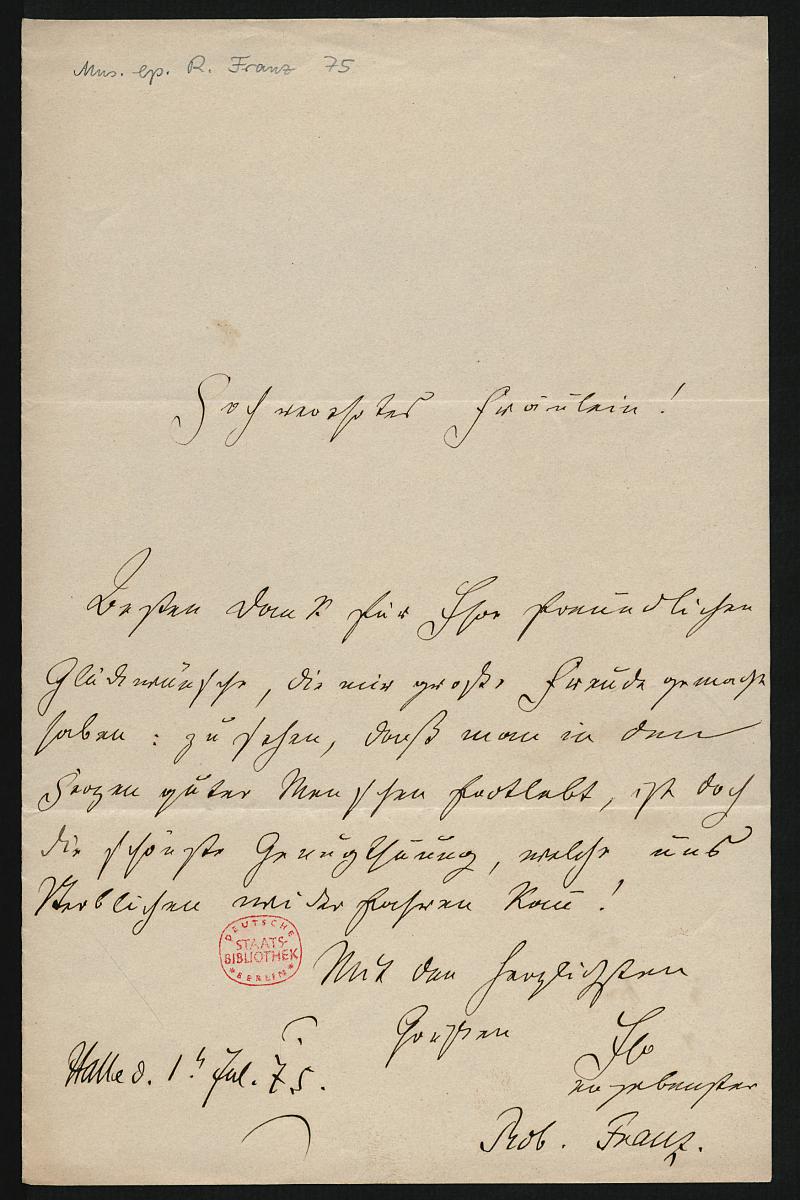 Mus. ep. R. Franz 75
Hochverehrtes Fräulein!
Besten Dank für Ihre freundlichen
Glückwünsche, die mir große Freude gemacht
haben: zu sehen, daß man in den
Herzen guter Menschen fortlebt, ist doch
die schönste Genugthuung, welche uns
Sterblichen widerfahren kann!
DEUTSCHE
STAATS-
BIBLIOTHEK
*BERLIN*
Mit den herzlichsten
Grüßen
Ihr
Halle d. 1t. Jul. 75.
ergebenster
Rob. Franz.